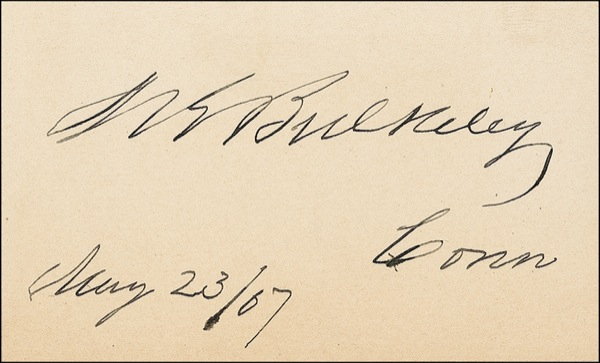 M G Bulkeley
Conn
May 23/07